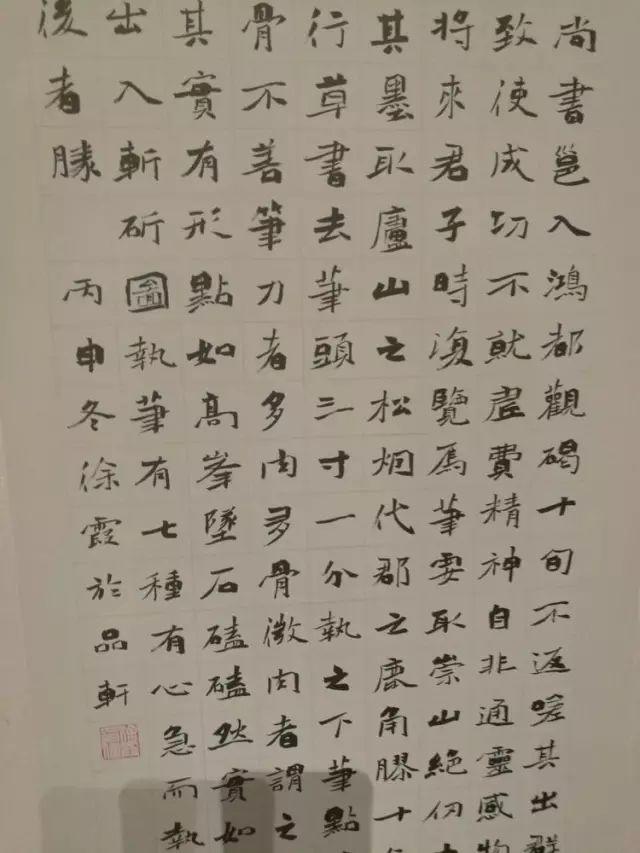 尚書邕入鴻都觀碣十旬不返嗟其出群
致使成功不就虛費精神自非通靈感物
將來君子時復覽焉筆要取崇山絕仞
其墨取廬山之松烟代郡之鹿角膠十
行草書去筆頭三寸一分執之下筆點
骨不善筆力者多肉多骨微肉者謂之
其實有形點如高峯墜石磕磕然實如
出入斬斫圖執筆有七種有心急而執
後者勝
丙申冬徐霞於品軒